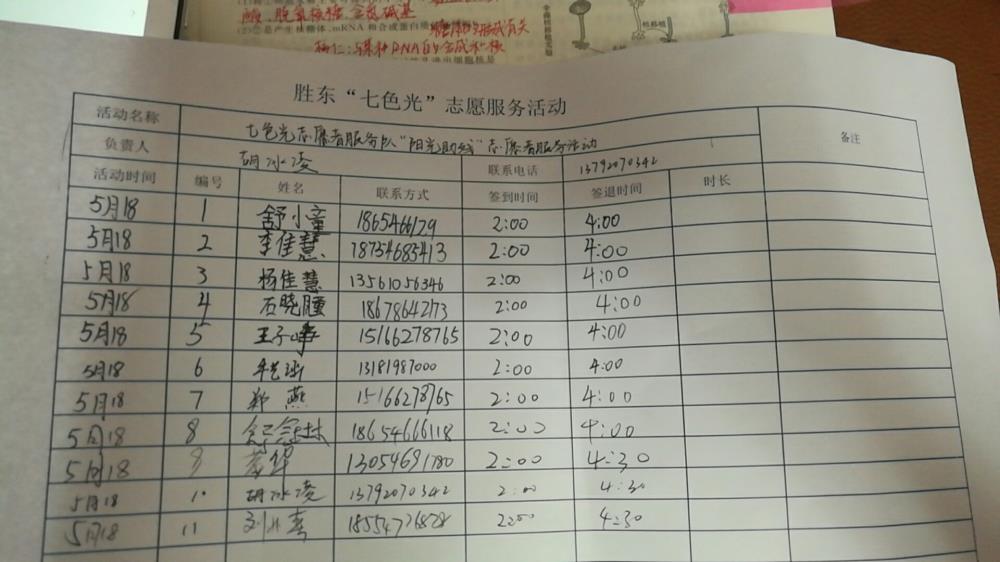 颅、脱氧核糖、含氮碱基
胜东“七色光”志愿服务活动
活动名称 七色光志愿者服务队“阳光助残”志愿者服务活动 备注
负责人 胡冰凌 联系电话 13792070342
活动时间 编号 姓名 联系方式 签到时间 签退时间 时长
5月18 1 舒小童 1865466129 2:00 4:00
5月18 2 李佳慧 18754685413 2:00 4:00
5月18 3 杨佳慧 13561056346 2:00 4:00
5月18 4 石晓瞳 18678642173 2:00 4:00
5月18 5 王子峥 15166278765 2:00 4:00
5月18 6 13181987000 2:00 4:00
5月18 7 郑燕 15166278765 2:00 4:00
5月18 8 18654666118 2:00 4:00
5月18 9 13054691780 2:00 4:30
5月18 10 胡冰凌 13792070342 2:00 4:30
5月18 11 18554726828 2:00 4:30